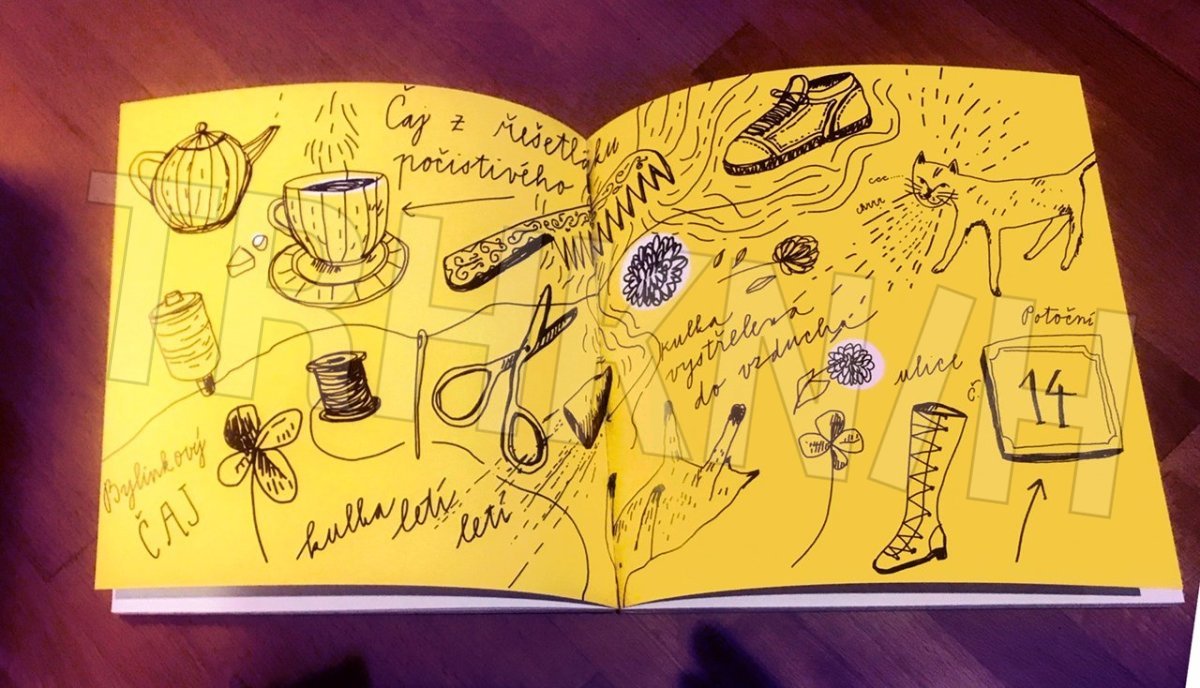 Čaj z řešetláku
počistivého
Bylinkový
ČAJ
kulka letí
letí
kulka
vystřelená
do vzduchu
Potoční
ulice
Č.
14
TRHKNIH